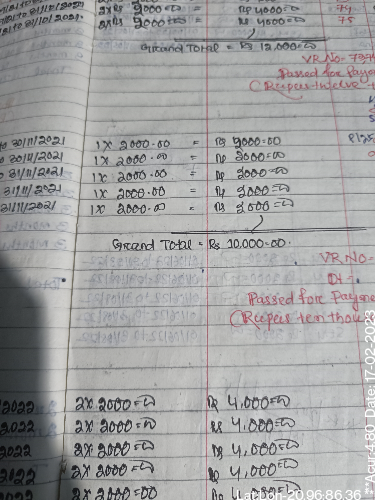 31/10/2021 2x Rs 2000=00 = Rs 4000=00 74
31/10/2021 2x Rs 2000=00 = Rs 4000=00 75
Grand Total = Rs 12,000=00
VR No- 797
Passed for Payme
(Rupees twelve
30/11/2021 1x 2000.00 = Rs 2000=00
30/11/2021 1x 2000.00 = Rs 2000=00
31/11/2021 1x 2000.00 = Rs 2000=00
31/11/2021 1x 2000.00 = Rs 2000=00
31/11/2021 1x 2000.00 = Rs 2000=00
Grand Total = Rs 10,000=00.
VR No-
Dt -
Passed for Payme
(Rupees ten thou
2022 2x 2000=00 Rs 4,000=00
2022 2x 2000=00 Rs 4,000=00
2022 2x 2000=00 Rs 4,000=00
2022 2x 2000=00 Rs 4,000=00
2022 2x 2000=00 Rs 4,000=00
Lat-Lon-20.96:86.36
**Acur-4.80 Date: 17-02-2023